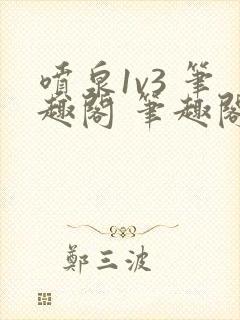 噴泉1v3 筆
趣閣 筆趣閣
鄭三波